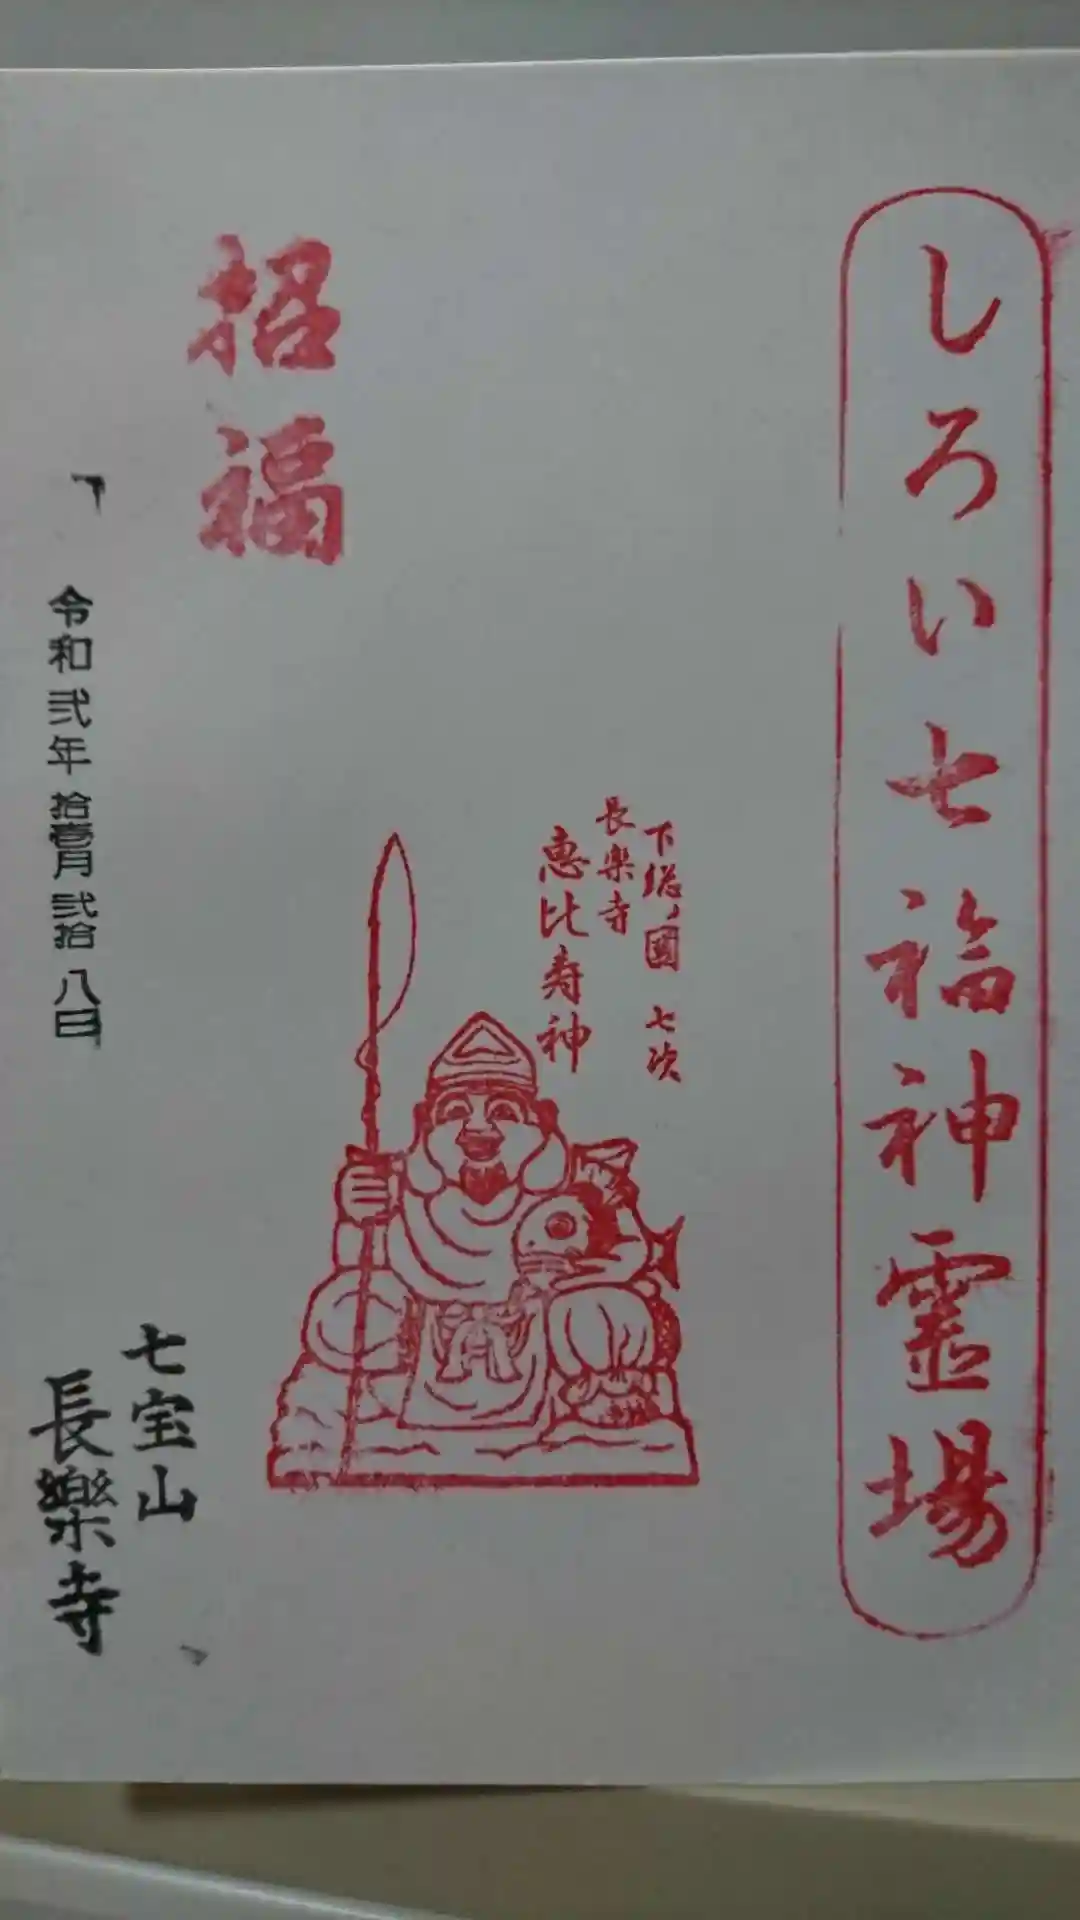 しろい七福神霊場
下総ノ國 七次
長楽寺
恵比寿神
招福
七宝山
長樂寺
令和弐年拾壱月弐拾八日